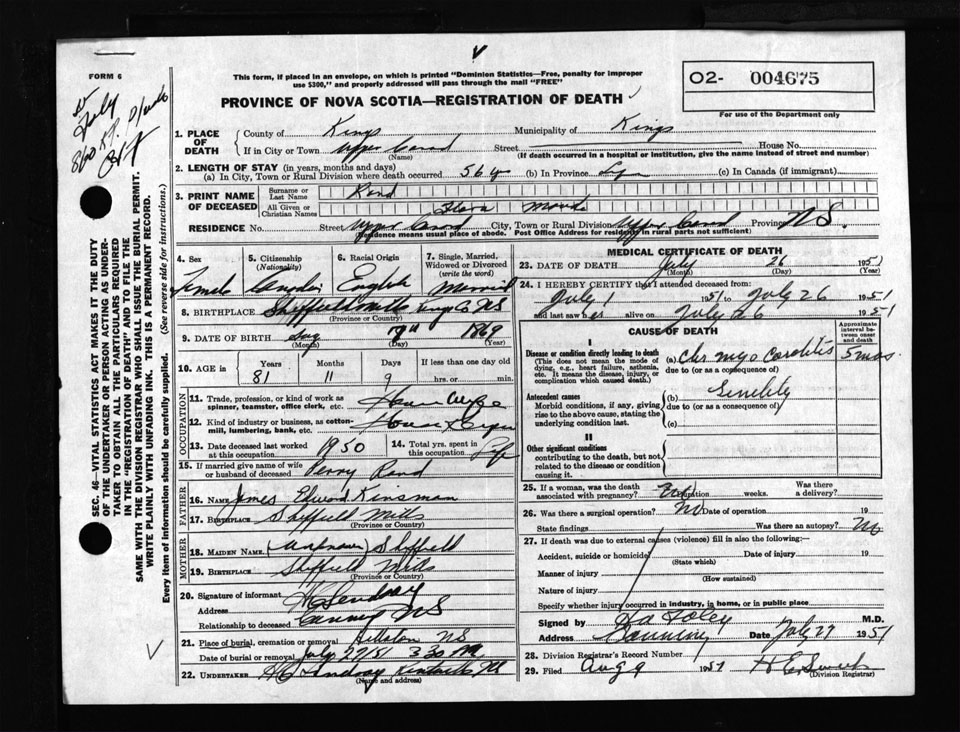 FORM 6
This form, if placed in an envelope, on which is printed "Dominion Statistics—Free, penalty for improper
use $300," and properly addressed will pass through the mail "FREE"
PROVINCE OF NOVA SCOTIA—REGISTRATION OF DEATH
O2- 004675
For use of the Department only
July
1. PLACE OF DEATH
County of Kings Municipality of Kings
If in City or Town Upper Canard Street House No.
(Name) (If death occurred in a hospital or institution, give the name instead of street and number)
2. LENGTH OF STAY (in years, months and days)
(a) In City, Town or Rural Division where death occurred 56 yr (b) In Province Life (c) In Canada (if immigrant)
3. PRINT NAME OF DECEASED
Surname or Last Name Rand
All Given or Christian Names Flora Maude
RESIDENCE No. Street Upper Canard City, Town or Rural Division Upper Canard Province N.S.
(Residence means usual place of abode. Post Office Address for residence in rural parts not sufficient)
4. Sex Female
5. Citizenship (Nationality) Canadian
6. Racial Origin English
7. Single, Married, Widowed or Divorced (write the word) Married
8. BIRTHPLACE Sheffield Mills Kings Co NS
(Province or Country)
9. DATE OF BIRTH Aug 17th 1869
(Month) (Day) (Year)
10. AGE Years 81 Months 11 Days 9 If less than one day old hrs. or min.
OCCUPATION
11. Trade, profession, or kind of work as spinner, teamster, office clerk, etc. House Wife
12. Kind of industry or business, as cotton-mill, lumbering, bank, etc.
13. Date deceased last worked at this occupation 1950
14. Total yrs. spent in this occupation Life
15. If married give name of wife or husband of deceased Perry Rand
FATHER
16. NAME James Edward Kinsman
17. BIRTHPLACE Sheffield Mills
(Province or Country)
MOTHER
18. MAIDEN NAME (unknown) Sheffield
19. BIRTHPLACE Sheffield Mills
(Province or Country)
20. Signature of informant
Address Canning NS
21. Place of burial, cremation or removal NS
Date of burial or removal July 29/51 3 30 PM
22. UNDERTAKER Lindsay
(Name and address)
MEDICAL CERTIFICATE OF DEATH
23. DATE OF DEATH July 26 1951
(Month) (Day) (Year)
24. I HEREBY CERTIFY that I attended deceased from:
July 1 1951 to July 26 1951
and last saw her alive on July 26 1951
CAUSE OF DEATH
Approximate interval between onset and death
I
Disease or condition directly leading to death (a) Chr myocarditis 5 mos.
(This does not mean the mode of dying, e.g., heart failure, asthenia, etc. It means the disease, injury, or complication which caused death.)
due to (or as a consequence of)
Antecedent causes (b) Senility
Morbid conditions, if any, giving rise to the above cause, stating the underlying condition last.
due to (or as a consequence of)
(c)
II
Other significant conditions
contributing to the death, but not related to the disease or condition causing it.
25. If a woman, was the death associated with pregnancy? No Duration weeks. Was there a delivery?
26. Was there a surgical operation? No Date of operation 19
State findings Was there an autopsy? No
27. If death was due to external causes (violence) fill in also the following:—
Accident, suicide or homicide? Date of injury 19
(State which)
Manner of injury
(How sustained)
Nature of injury
Specify whether injury occurred in industry, in home, or in public place
Signed by Foley M.D.
Address Canning Date July 27 1951
28. Division Registrar's Record Number
29. Filed Aug 9 1951
(Division Registrar)
SEC. 46—VITAL STATISTICS ACT MAKES IT THE DUTY
OF THE UNDERTAKER OR PERSON ACTING AS UNDER-
TAKER TO OBTAIN ALL THE PARTICULARS REQUIRED
IN THE "REGISTRATION OF DEATH" AND TO FILE THE
SAME WITH THE DIVISION REGISTRAR WHO SHALL ISSUE THE BURIAL PERMIT.
WRITE PLAINLY WITH UNFADING INK. THIS IS A PERMANENT RECORD.
Every item of information should be carefully supplied. (See reverse side for instructions.)